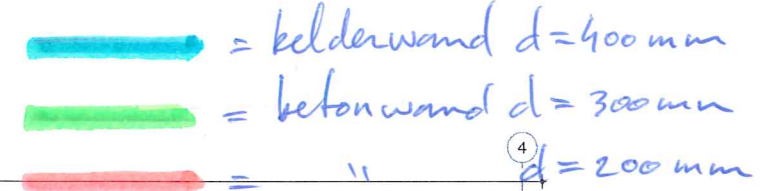 = kelderwand d=400 mm
= betonwand d=300 mm
4
= " d=200 mm